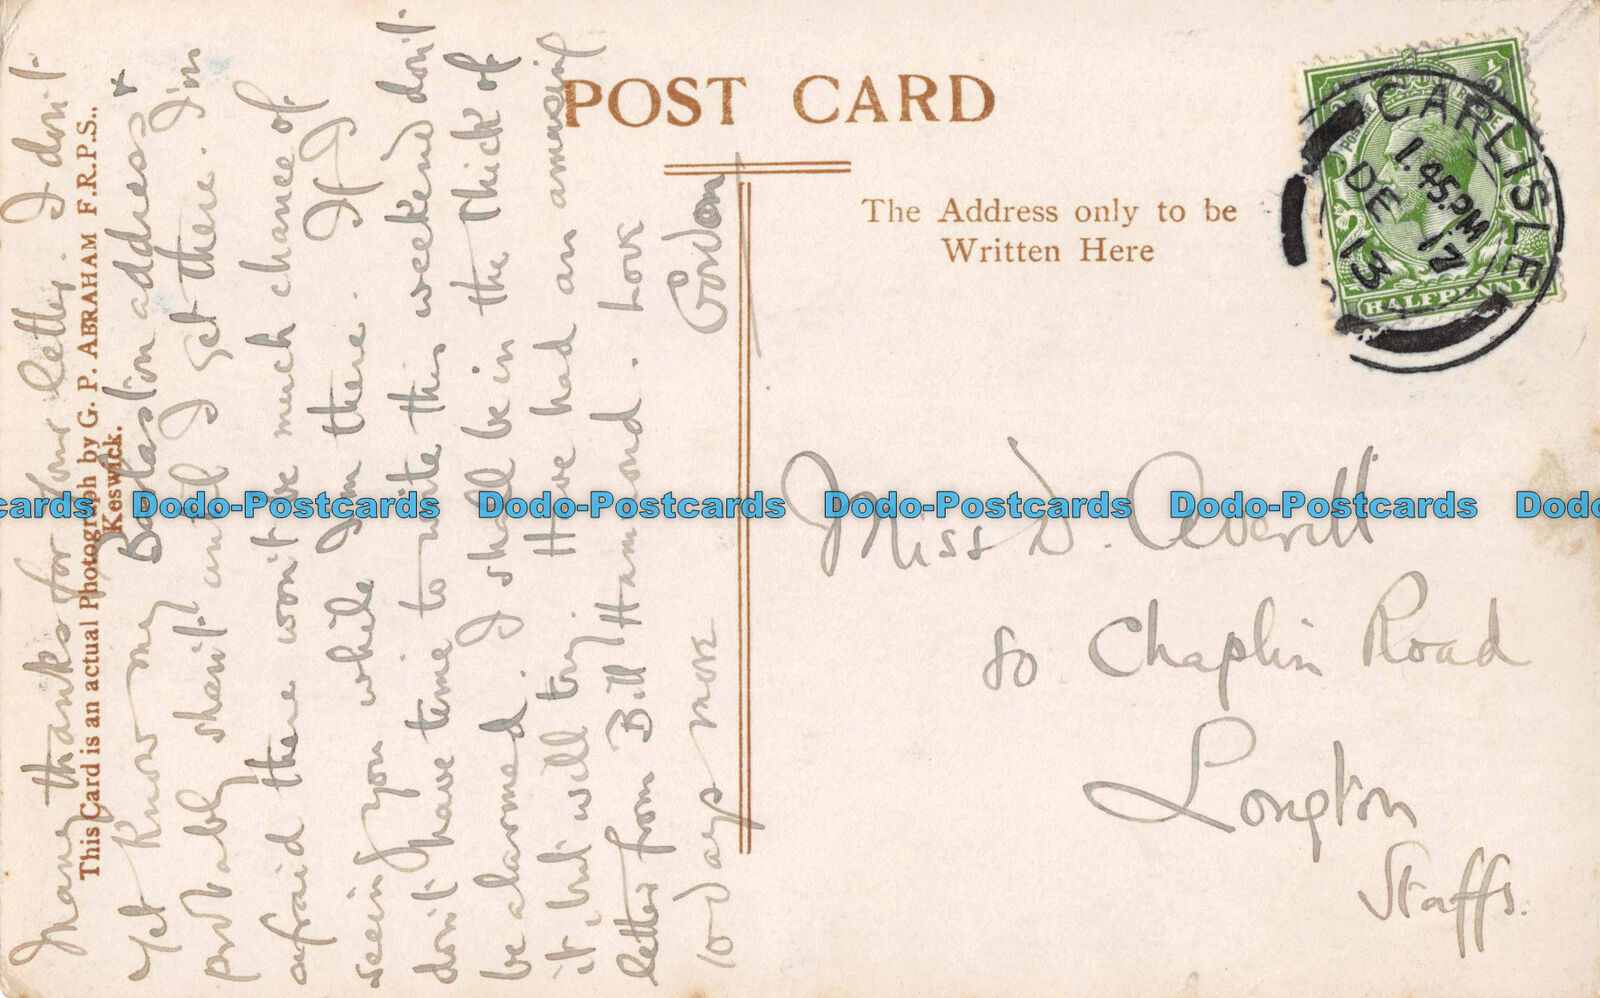 POST CARD
The Address only to be
Written Here
CARLISLE
1.45PM
DE 17
13
HALFPENNY
Many thanks for your letter. I don't
yet know my Barlaston address &
probably shan't until I get there. I'm
afraid there won't be much chance of
seeing you while I'm there. If I
don't have time to write this weekend don't
be alarmed. I shall be in the thick of
it, but will try. Have had an amusing
letter from Bill Hammond. Love
10 days more Gordon
This Card is an actual Photograph by G. P. ABRAHAM F.R.P.S.,
Keswick.
Miss D. Averill
80 Chaplin Road
Longton
Staffs.
Dodo-Postcards Dodo-Postcards Dodo-Postcards Dodo-Postcards